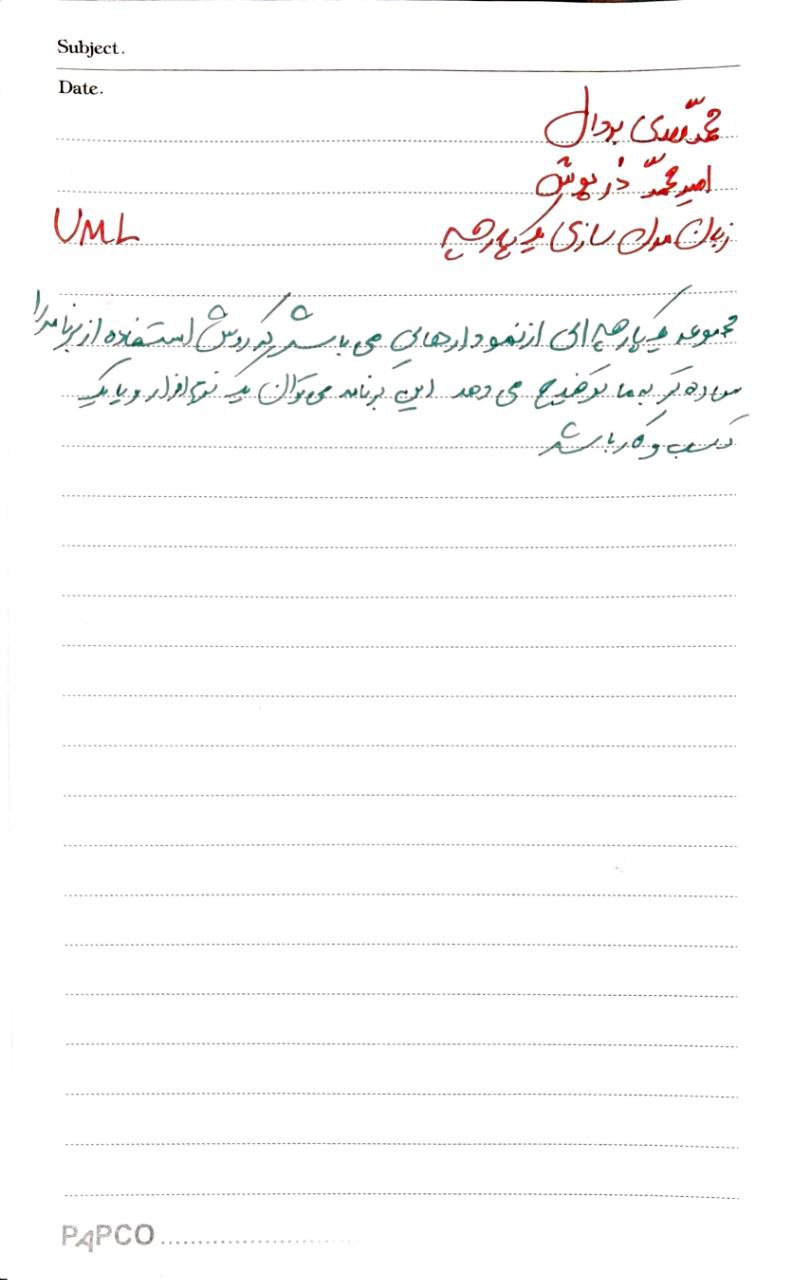 Subject.
Date.
محمد مهدی بردال
امیر محمد
زبان مدل سازی یک پارچه UML
مجموعه یک پارچه ایی از نمودارهایی می باشد که روش استفاده از برنامه را
ساده تر به ما توضیح می دهد این برنامه می توان یک نرم افزار و یا یک
کسب و کار باشد
PAPCO